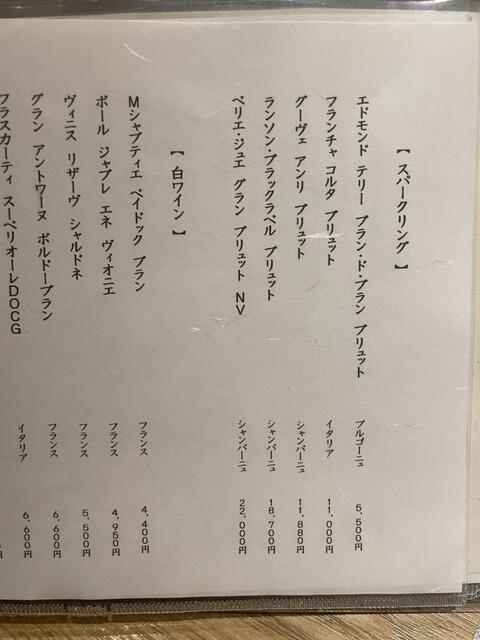 【スパークリング】
エドモンド テリー ブラン・ド・ブラン ブリュット ブルゴーニュ 5,500円
フランチャ コルタ ブリュット イタリア 11,000円
グーヴェ アンリ ブリュット シャンパーニュ 11,880円
ランソン・ブラックラベル ブリュット シャンパーニュ 18,700円
ペリエ・ジュエ グラン ブリュット NV シャンパーニュ 22,000円
【白ワイン】
Mシャプティエ ペイドック ブラン フランス 4,400円
ポール ジャブレ エネ ヴィオニエ フランス 4,950円
ヴィニス リザーヴ シャルドネ フランス 5,500円
グラン アントワーヌ ボルドーブラン フランス 6,600円
フラスカーティ スーペリオーレDOCG イタリア 6,600円